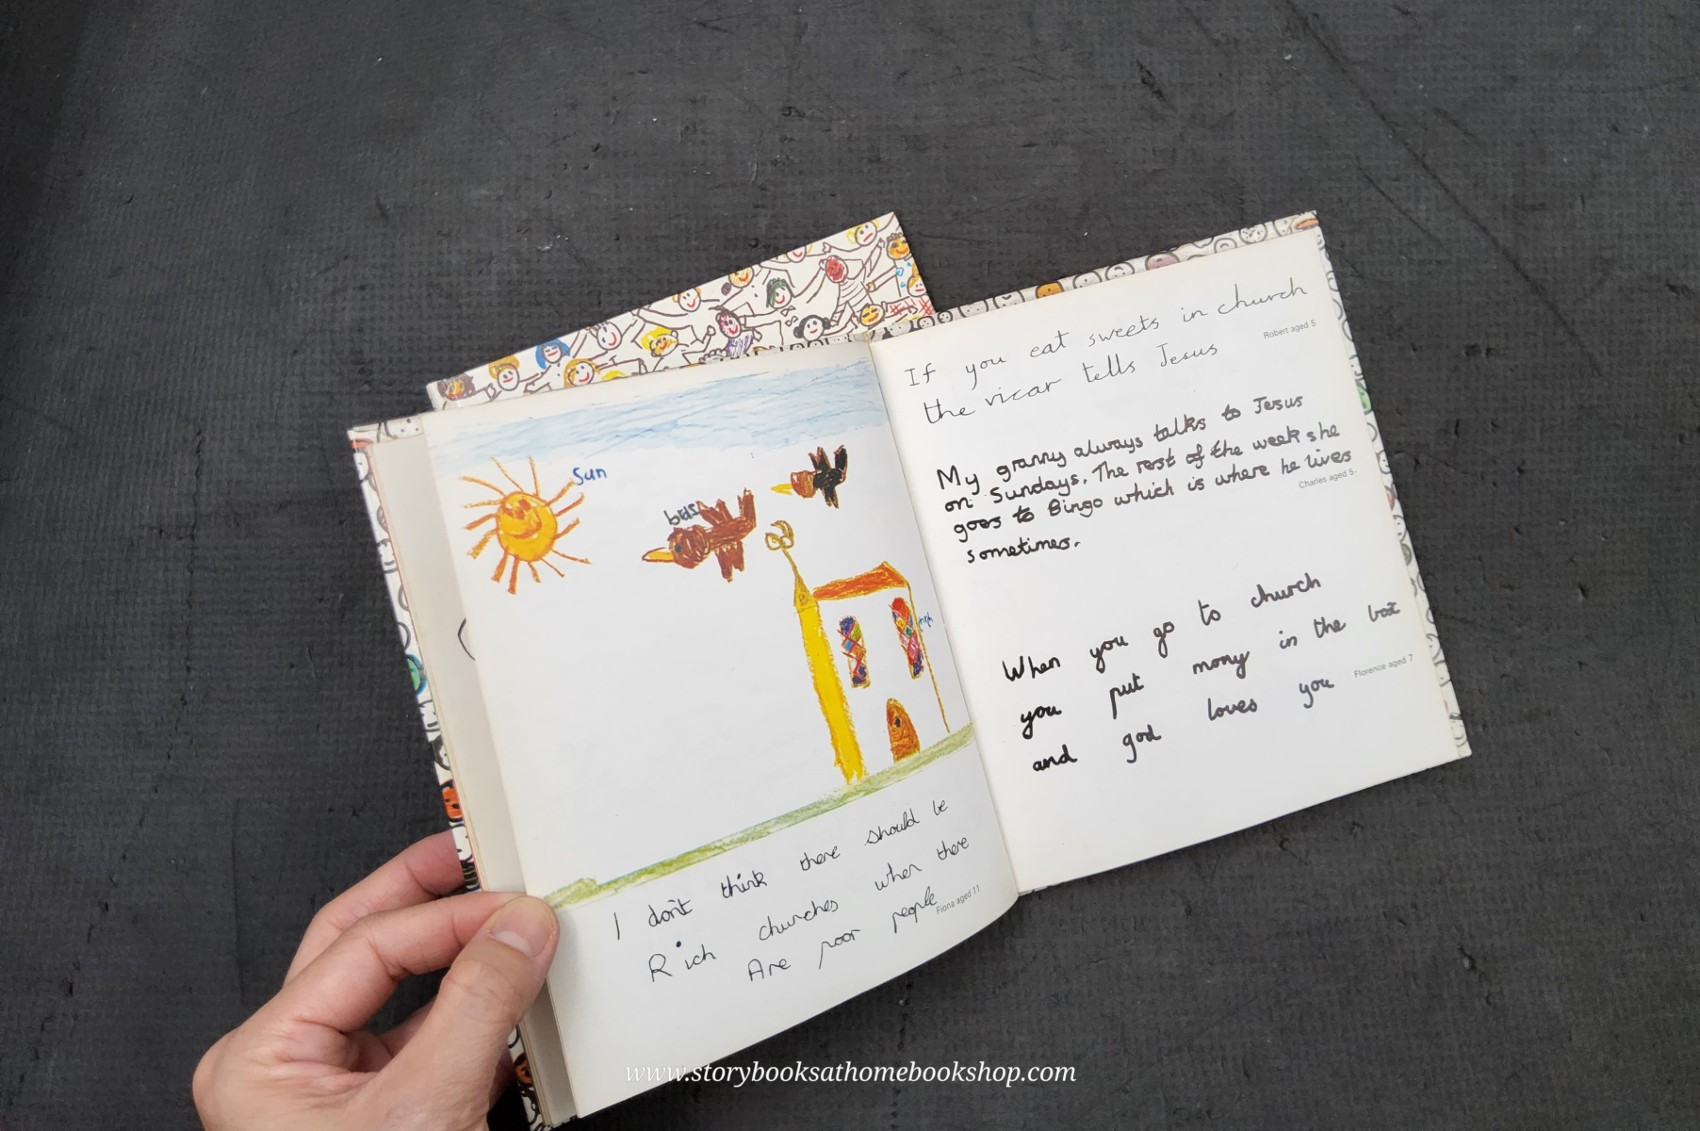 Sun
birds
I don't think there should be
Rich churches when there
Are poor people
Fiona aged 11
If you eat sweets in church
the vicar tells Jesus
Robert aged 5
My granny always talks to Jesus
on Sundays. The rest of the week she
goes to Bingo which is where he lives
sometimes.
Charles aged 5
When you go to church
you put mony in the box
and god loves you
Florence aged 7
www.storybooksathomebookshop.com